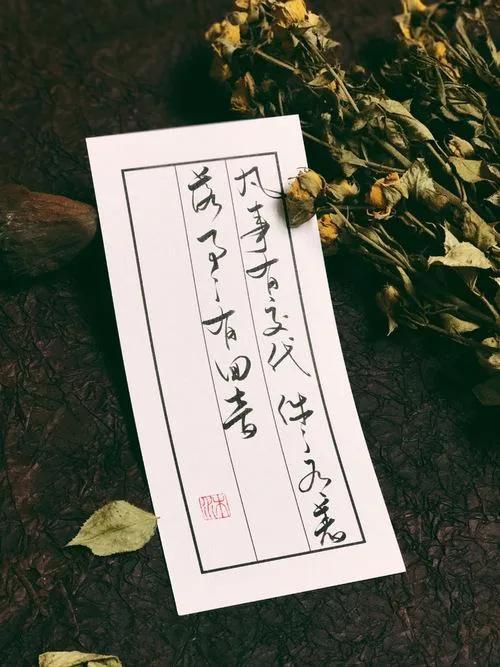 凡事有交代 件〻有着
落 事〻有回音